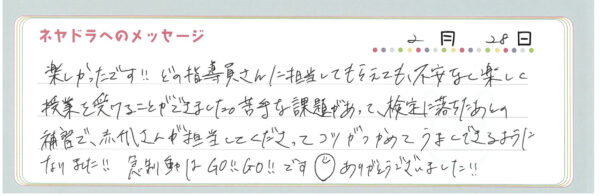 ネヤドラへのメッセージ
2月28日
楽しかったです!! どの指導員さんに担当してもらえても、不安なく楽しく
授業を受けることができました。苦手な課題があって、検定に落ちたあとの
補習で、赤代さんが担当してくださってコツがつかめてうまくできるように
なりました!! 急制動はGO!!GO!!です ありがとうございました!!